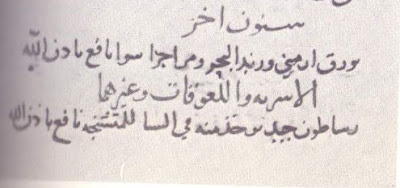 سنون اخر
بورق ارمني وزبد البحر ومر اجزا سوا نافع باذن الله
الاسربه واللعوقات وغيرهما
رساطون جيد يوخذ منه في نافع باذن الله